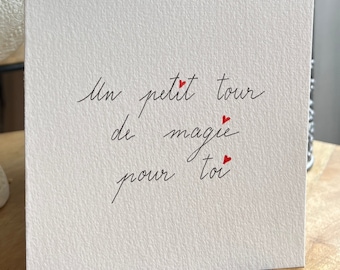 Un petit tour
de magie
pour toi